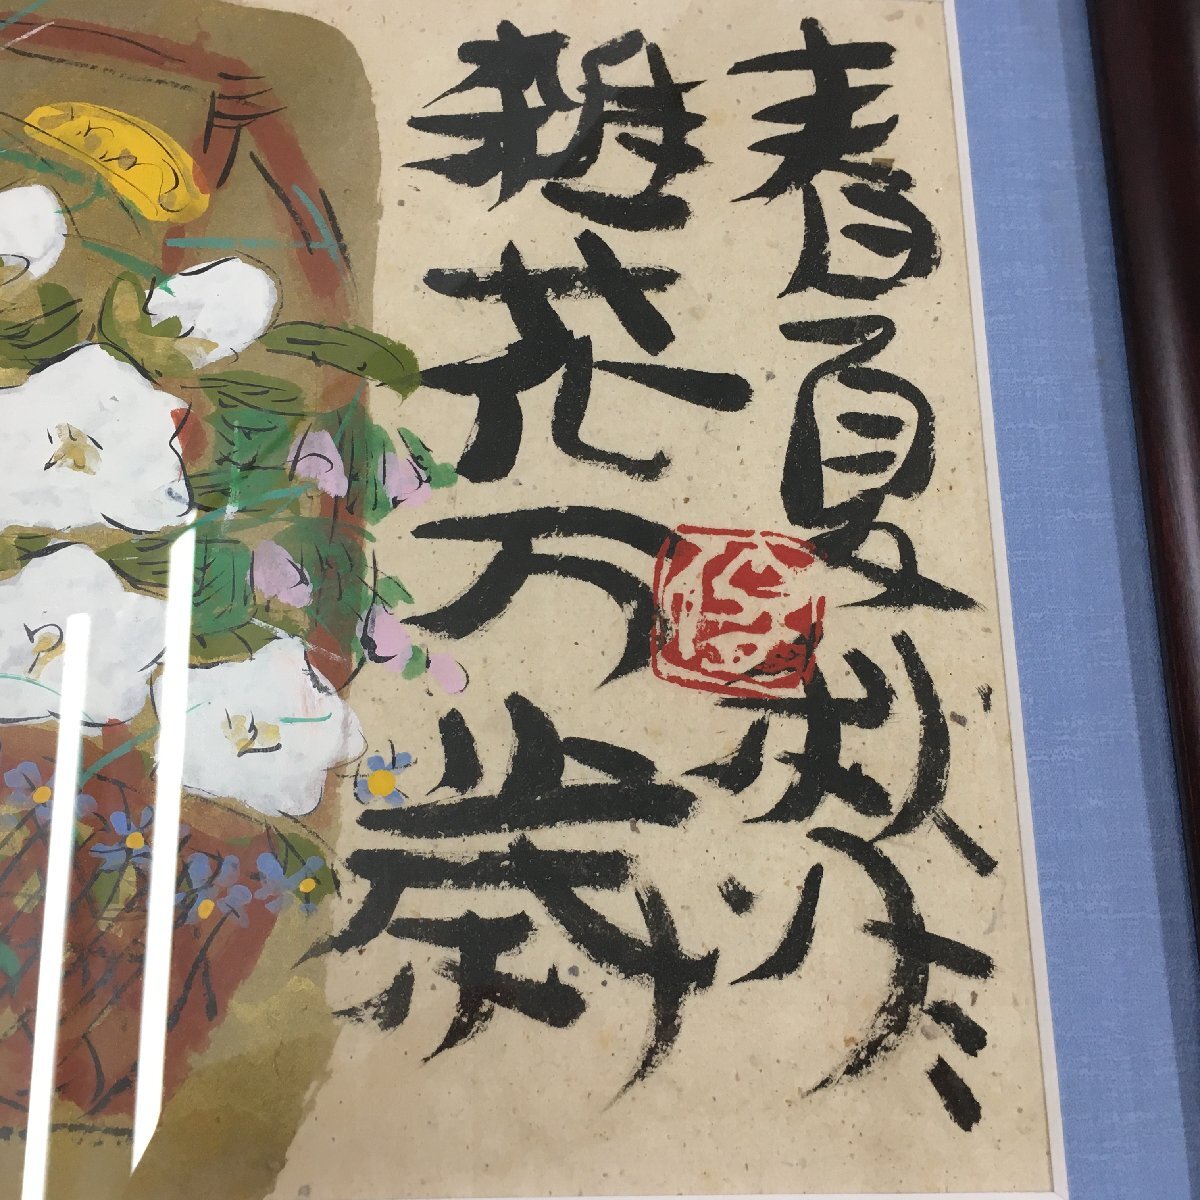 春夏秋冬
雑花万歳